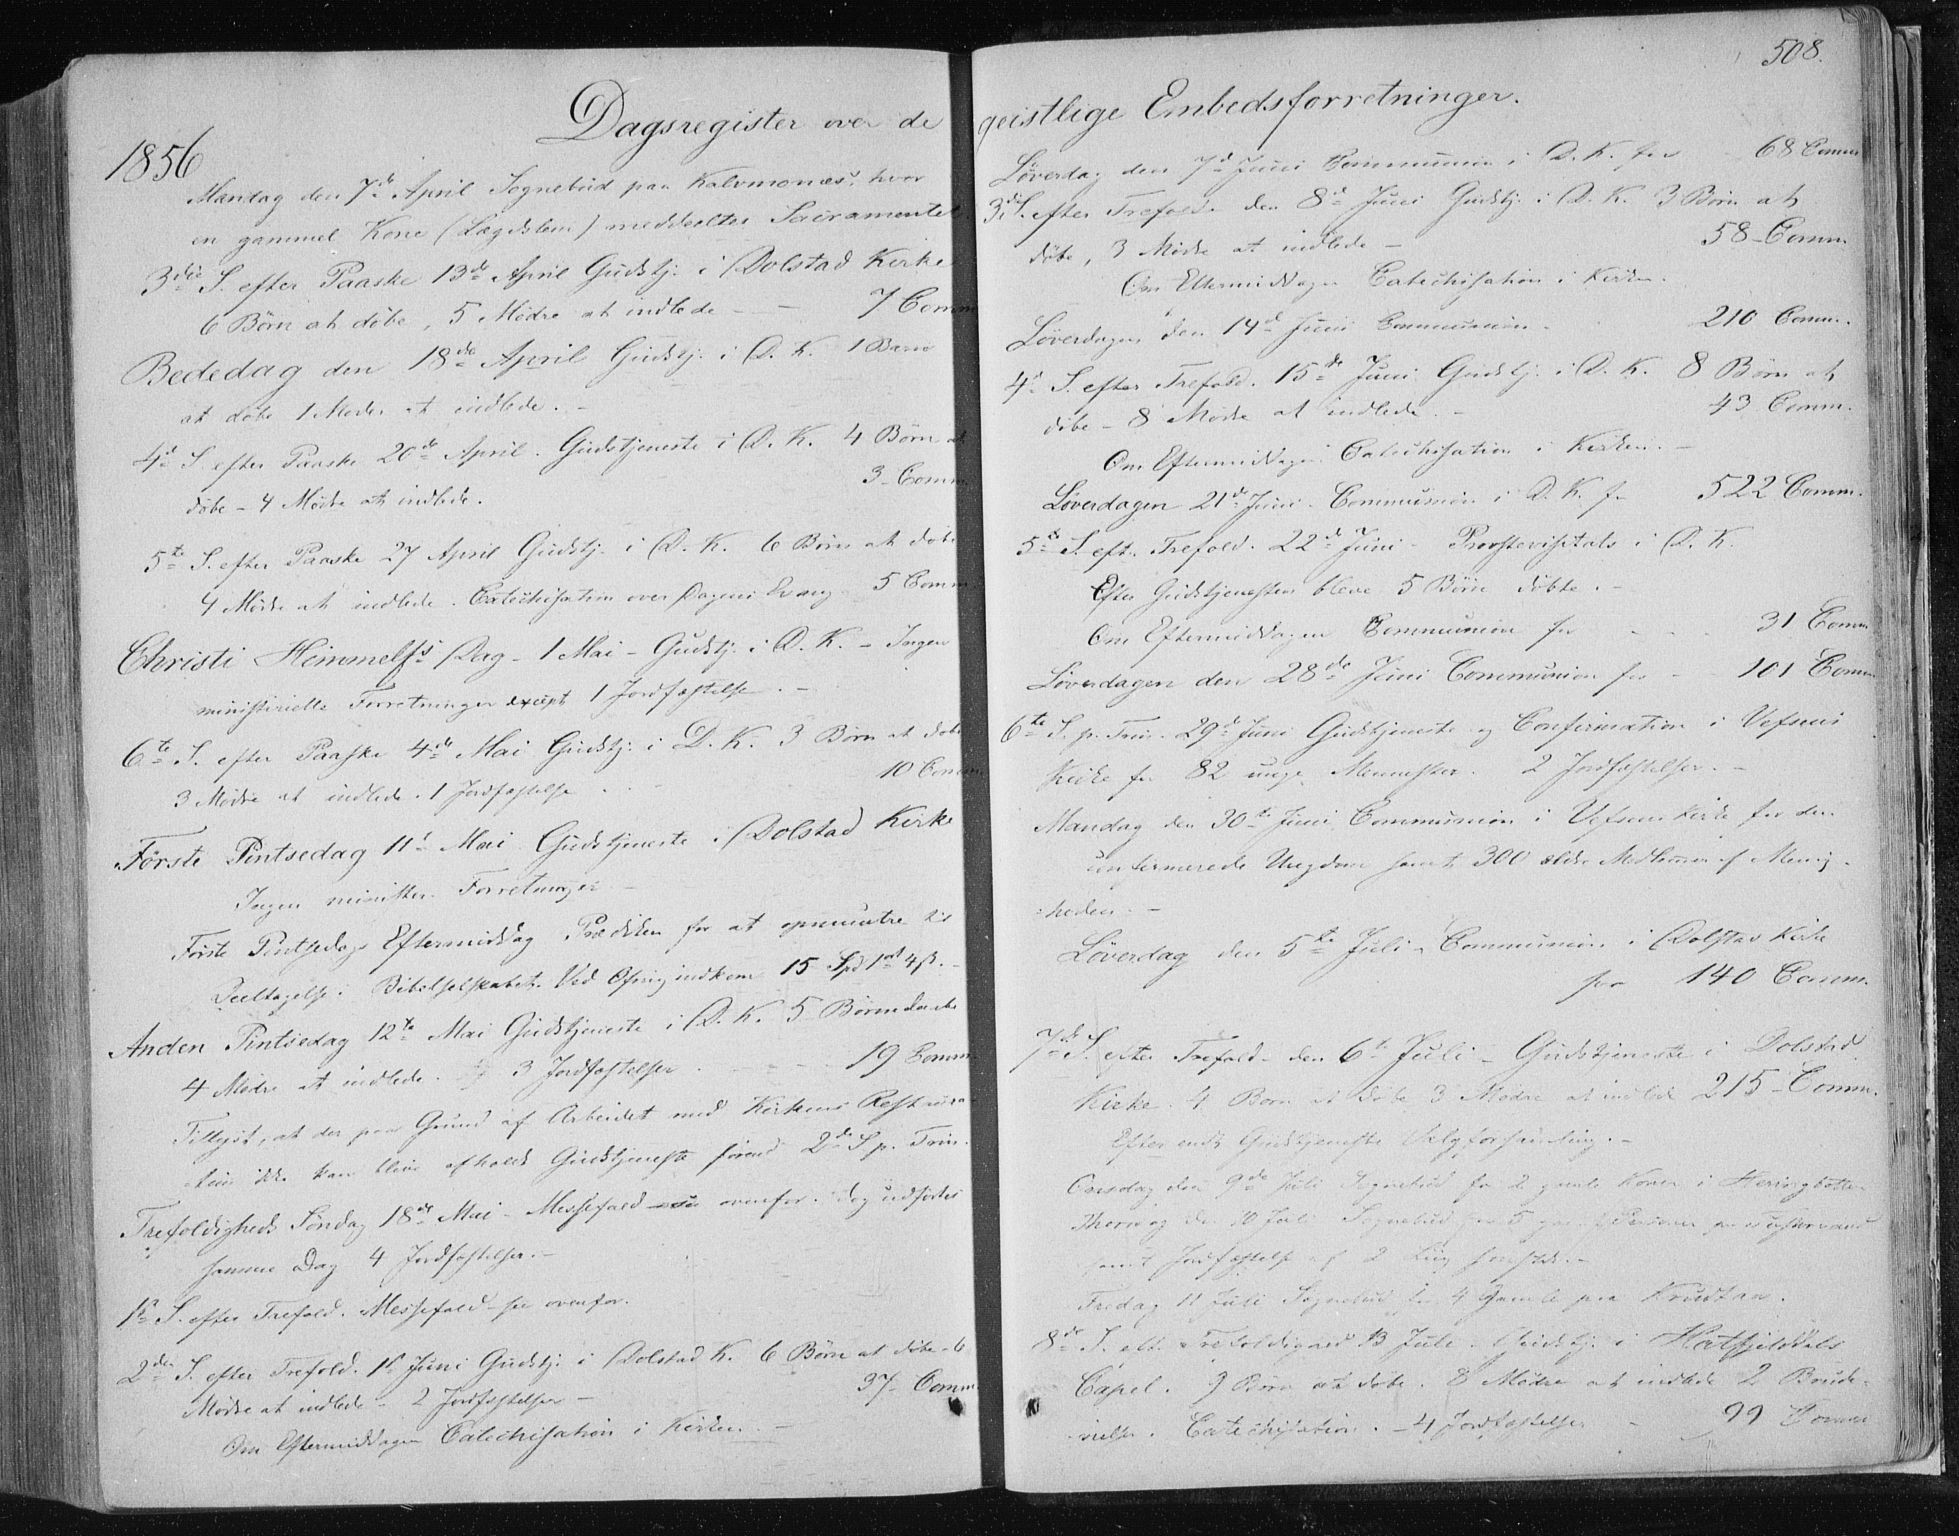 Dagsregister over de
1856
Mandag den 7de April Sognebud paa Kalvmonæs, hvor
en gammel Kone (Lægdslem) meddeeltes Sacramentet
3die S. efter Paaske 13de April Gudstj. i Dolstad Kirke
6 Børn at døbe, 5 Mødre at indlede - 7 Comm
Bededag den 18de April Gudstj. i D. K. 1 Barn
at døbe 1 Moder at indlede. -
4de S. efter Paaske 20de April. Gudstjeneste i D. K. 4 Børn at
døbe - 4 Mødre at indlede. 3 - Comm.
5te S. efter Paaske 27 April Gudstj. i D. K. 6 Børn at døbe
4 Mødre at indlede. Catechisation over Dagens Evang. 5 Comm
Christi Himmelfs Dag - 1 Mai - Gudstj. i D. K. - Ingen
ministerielle Forretninger except 1 Jordfæstelse. -
6te S. efter Paaske 4de Mai Gudstj. i D. K. 3 Børn at døbe
3 Mødre at indlede. 1 Jordfæstelse . . 10 Comm
Første Pintsedag 11te Mai Gudstjeneste i Dolstad Kirke
Ingen minister. Forretninger -
Første Pintsedags Eftermiddag Prædiken for at opmuntre til
Deeltagelse i Bibelselskabet. Ved Ofring indkom 15 Spd 1 ort 4 ß. -
Anden Pintsedag 12te Mai Gudstjeneste i D. K. 5 Børn døbte
4 Mødre at indlede. 3 Jordfæstelser . - - - 19 Comm
Tillyst, at der paa Grund af Arbeidet med Kirkens Restaura-
-tion ikke kan blive afholdt Gudstjeneste førend 2de S. p. Trin.
Trefoldigheds Søndag 18de Mai - Messefald ovenfor. Dog udførtes
samme Dag 4 Jordfæstelser. -
1ste S. efter Trefold. Messefald - see ovenfor.
2den S. efter Trefold. 1ste Juni Gudstj. i Dolstad K. 6 Børn at døbe - 6
Mødre at indlede - 2 Jordfæstelser - 37 - Comm
Om Eftermiddagen Catechisation i Kirken. -
508.
geistlige Embedsforretninger.
Løverdag den 7de Juni Communion i D. K. for 68 Comm
3die S. efter Trefold. den 8de Juni Gudstj. i D. K. 3 Børn at
døbe, 3 Mødre at indlede - 58 - Comm.
Om Eftermiddagen Catechisation i Kirken.
Løverdagen den 14de Juni Communion . 210 Comm.
4de S. efter Trefold. 15de Juni Gudstj. i D. K. 8 Børn at
døbe - 8 Mødre at indlede. - 43 Comm.
Om Eftermiddagen Catechisation i Kirken. -
Løverdagen 21de Juni. Communion i D. K. for 522 Comm.
5te S. eft. Trefold. 22de Juni - Provstevisitats i D. K.
Efter Gudstjenesten bleve 5 Børn døbte. -
Om Eftermiddagen Communion for - - - 31 Comm
Løverdagen den 28de Juni Communion for - - 101 Comm
6te S. p. Trin. 29de Juni Gudstjeneste og Confirmation i Vefsens
Kirke for 82 unge Mennesker. 2 Jordfæstelser. -
Mandag den 30te Juni Communion i Vefsens Kirke for den
confirmerede Ungdom samt 300 ældre Medlemmer af Menig-
-heden. -
Løverdag den 5te Juli - Communion i Dolstad Kirke
for 140 Comm.
7de S. efter Trefold - den 6te Juli - Gudstjeneste i Dolstad
Kirke. 4 Børn at døbe 3 Mødre at indlede 215 - Comm.
Efter endt Gudstjeneste Valgforsamling. -
Onsdag den 9de Juli Sognebud for 2 gamle Koner i Herringbotten
Thorsdag den 10 Juli Sognebud for 5 gamle Personer paa
samt Jordfæstelse af 2 Liig
Fredag 11 Juli Sognebud for 4 Gamle paa Krudtaa.
8de S. eft. Trefoldighed 13 Juli. Gudstj. i Hatfjelddals
Capel. 9 Børn at døbe. 8 Mødre at indlede 2 Brude-
vielser. Catechisation. - 4 Jordfæstelser - 99 Comm